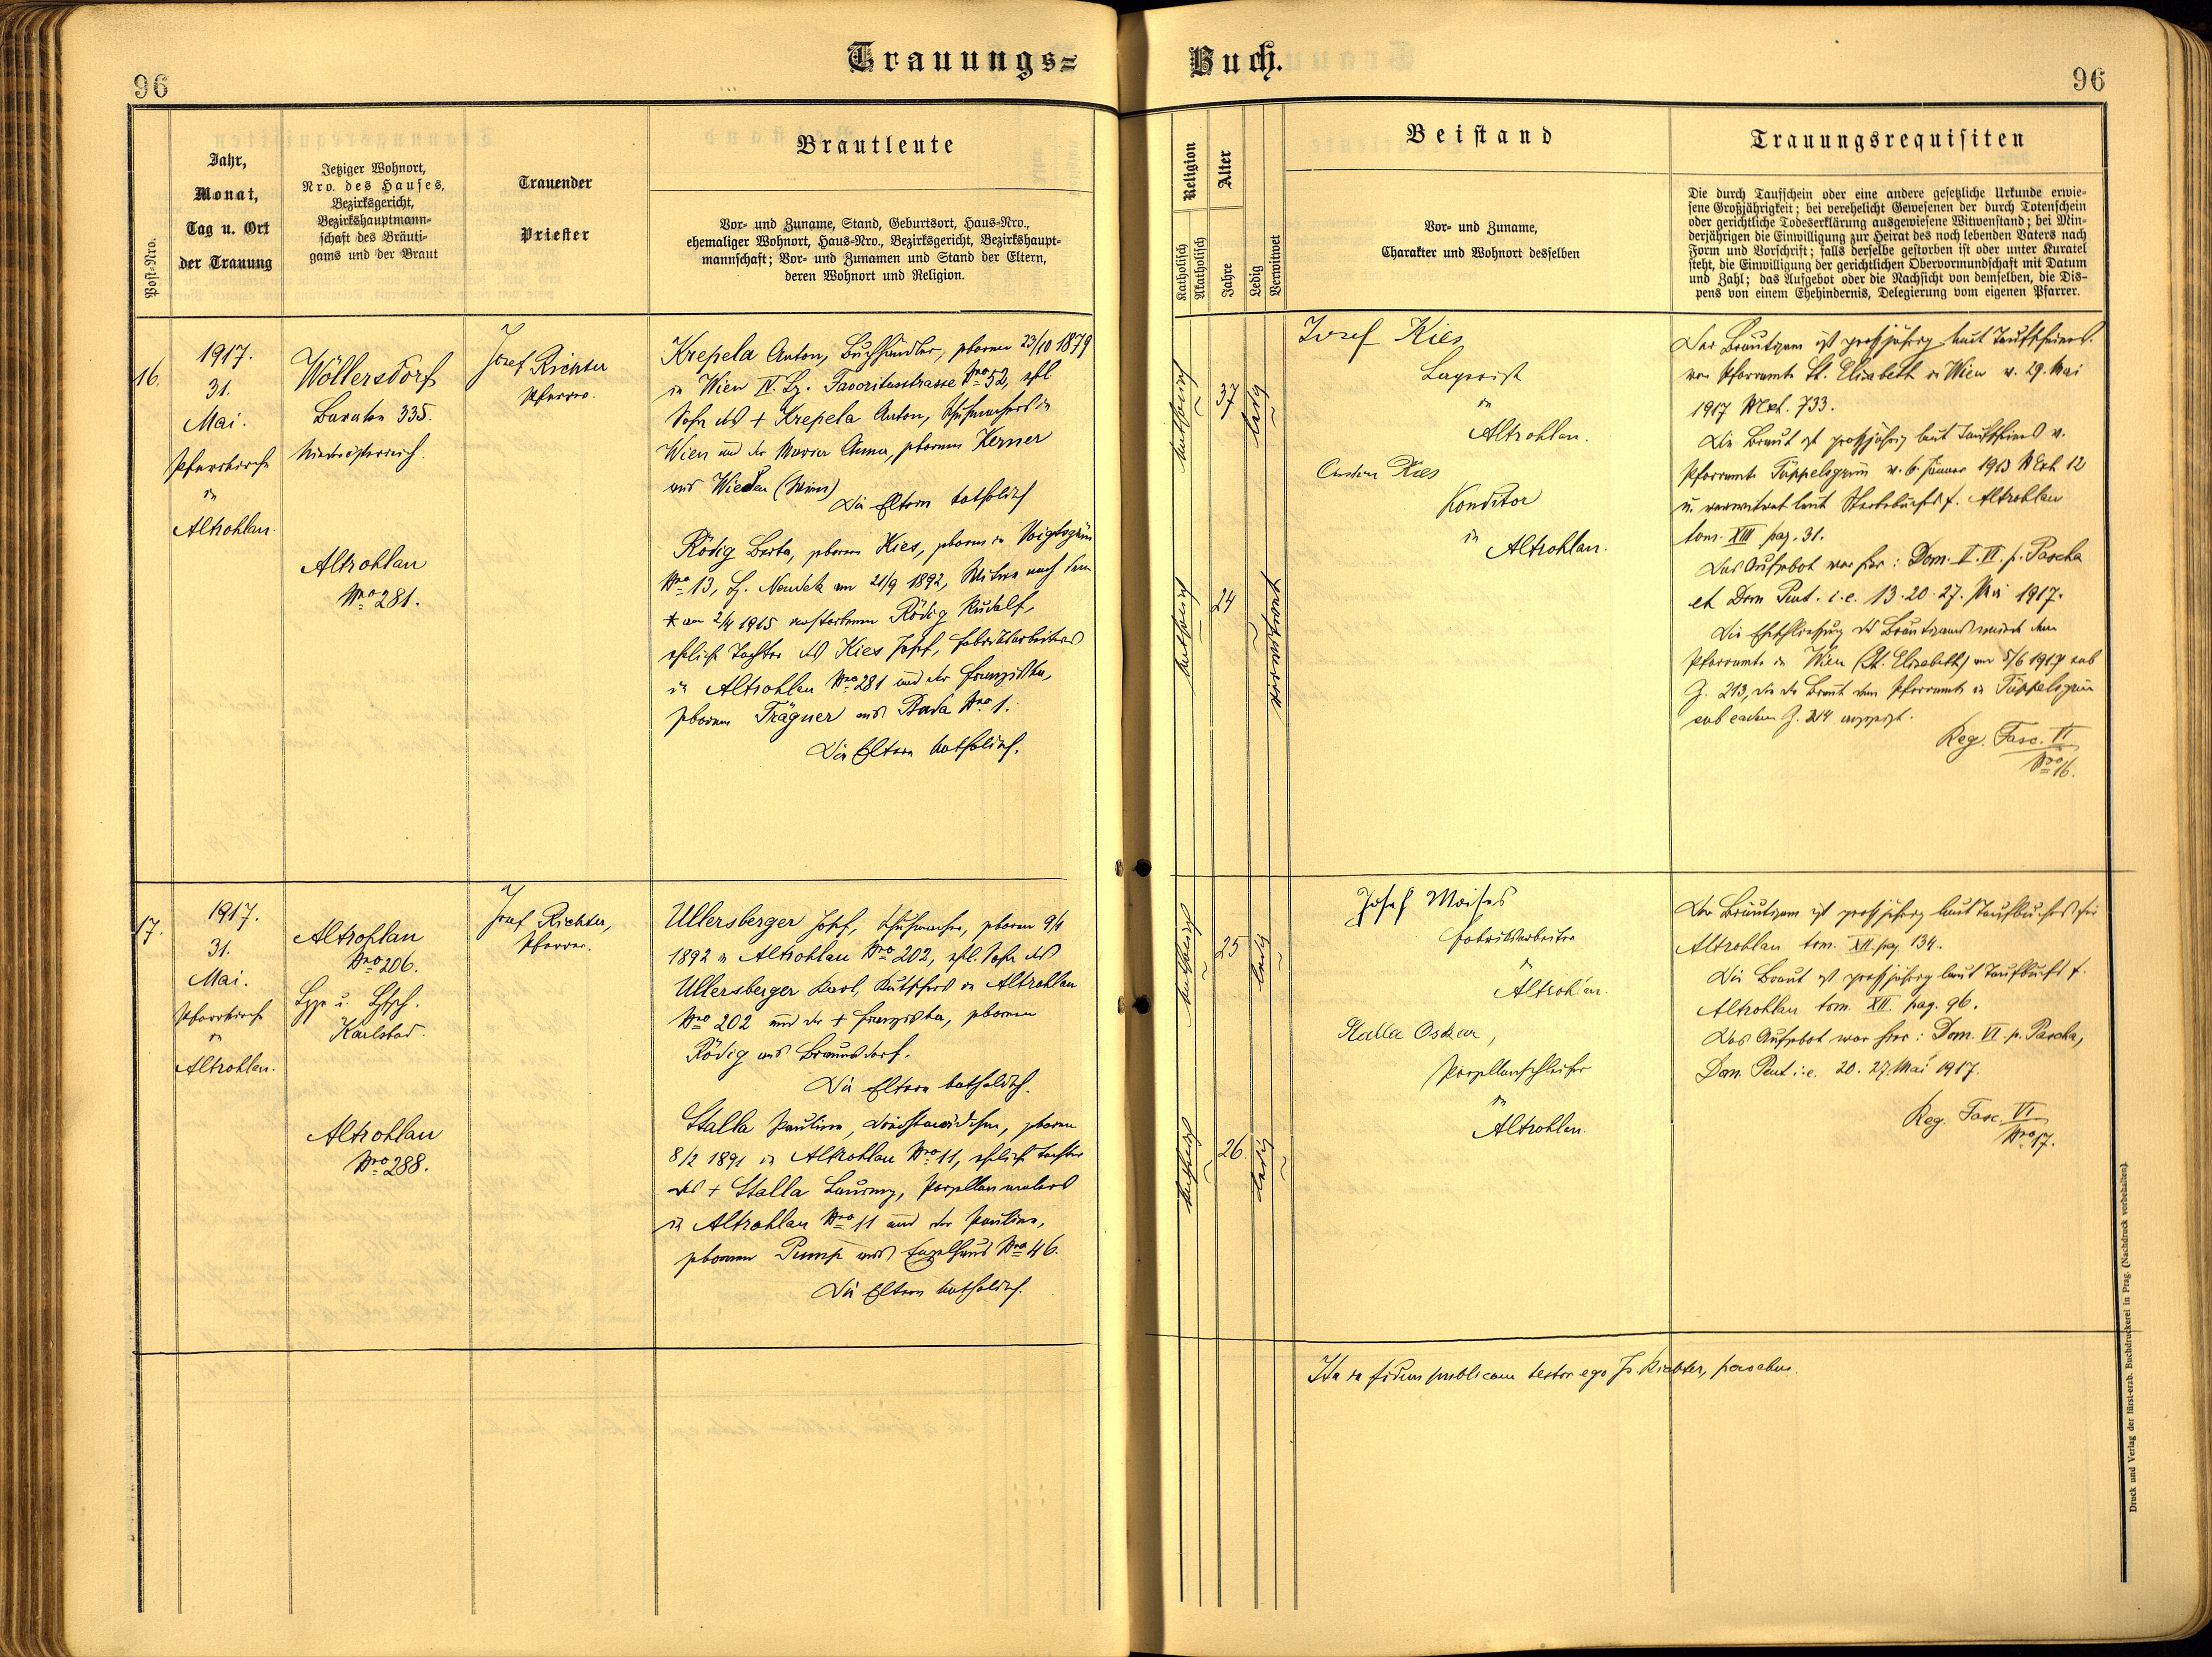 96
Trauungs=
Post-Nro.
Jahr,
Monat,
Tag u. Ort
der Trauung
Jetziger Wohnort,
Nro. des Hauses,
Bezirksgericht,
Bezirkshauptmann-
schaft des Bräuti-
gams und der Braut
Trauender
Priester
Brautleute
Vor- und Zuname, Stand, Geburtsort, Haus-Nro.,
ehemaliger Wohnort, Haus-Nro., Bezirksgericht, Bezirkshaupt-
mannschaft; Vor- und Zunamen und Stand der Eltern,
deren Wohnort und Religion.
16.
1917.
31.
Mai.
Pfarrkirche
in
Altrohlau.
Wöllersdorf
Baraken 335.
Niederösterreich.
Altrohlau
Nro 281.
Josef Richter
Pfarrer.
Krepela Anton, Buchhändler, geboren 23/10 1879
in Wien IV. Bz. Favoritenstrasse Nro 52, ehl.
Sohn des + Krepela Anton, Schuhmachers in
Wien und der Maria Anna, geborenen Kerner
aus Wieden (Wien)
Die Eltern katholisch
Rödig Berta, geborene Kies, geboren in Voigtsgrün
Nro 13, Bz. Neudek am 21/9 1892, Witwe nach dem
am 2/4 1915 verstorbenen Rödig Rudolf,
eheliche Tochter des Kies Josef, Fabriksarbeiters
in Altrohlau Nro 281 und der Franziska,
geborenen Trägner aus Bada Nro 1.
Die Eltern katholisch.
17.
1917.
31.
Mai.
Pfarrkirche
in
Altrohlau.
Altrohlau
Nro 206.
Karlsbad.
Altrohlau
Nro 288.
Josef Richter,
Pfarrer.
Ullersberger Josef, Schuhmacher, geboren 9/4
1892 in Altrohlau Nro 202, ehl. Sohn des
Ullersberger Karl, Kutschers in Altrohlau
Nro 202 und der + Franziska, geborenen
Rödig aus Braunsdorf.
Die Eltern katholisch.
Stalla Pauline, geboren
8/2 1891 in Altrohlau Nro 11, eheliche Tochter
des + Stalla Lorenz, Porzellanmalers
in Altrohlau Nro 11 und der Pauline,
geborenen Pump aus Engelhaus Nro 46.
Die Eltern katholisch.
Buch.
96
Religion
Katholisch
Akatholisch
Alter
Jahre
Ledig
Verwitwet
Beistand
Vor- und Zuname,
Charakter und Wohnort desselben
Trauungsrequisiten
Die durch Taufschein oder eine andere gesetzliche Urkunde erwie-
sene Großjährigkeit; bei verehelicht Gewesenen der durch Totenschein
oder gerichtliche Todeserklärung ausgewiesene Witwenstand; bei Min-
derjährigen die Einwilligung zur Heirat des noch lebenden Vaters nach
Form und Vorschrift; falls derselbe gestorben ist oder unter Kuratel
steht, die Einwilligung der gerichtlichen Obervormundschaft mit Datum
und Zahl; das Aufgebot oder die Nachsicht von demselben, die Dis-
pens von einem Ehehindernis, Delegierung vom eigenen Pfarrer.
katholisch
37
ledig
katholisch
24
verwitwet
Josef Kies
in
Altrohlau.
Kies
Konditor
in
Altrohlau.
Der Bräutigam ist grossjährig laut Taufscheines
vom Pfarramte St. Elisabeth in Wien v. 29. Mai
1917 NExh. 733.
Die Braut ist grossjährig laut Taufscheines v.
Pfarramte Tüppelsgrün v. 6. Jänner 1913 NExh 12
u. verwitwet laut Sterbebuches f. Altrohlau
tom. XIII pag. 31.
Das Aufgebot war hier: Dom. V. VI. p. Pascha
et Dom Pent. i.e. 13. 20. 27. Mai 1917.
Die Eheschliessung des Bräutigams wurde dem
Pfarramte in Wien (St. Elisabeth) am 5/6 1917 sub
Z. 213, die der Braut dem Pfarramte in Tüppelsgrün
sub eadem Z. 214 angezeigt.
Reg. Fasc. VI
Nro 16.
katholisch
25
ledig
katholisch
26
ledig
Josef Moises
Fabriksarbeiter
in
Altrohlau.
Stalla Oskar,
Porzellanschleifer
in
Altrohlau.
Der Bräutigam ist grossjährig laut Taufbuches für
Altrohlau tom. XII. pag. 134.
Die Braut ist grossjährig laut Taufbuches f.
Altrohlau tom. XII. pag. 96.
Das Aufgebot war hier: Dom. VI. p. Pascha,
Dom. Pent i.e. 20. 27. Mai 1917.
Reg. Fasc. VI
Nro 17.
Ita in fidem publicam testor ego Js. Richter, parochus.
Druck und Verlag der fürst-erzb. Buchdruckerei in Prag. (Nachdruck vorbehalten)